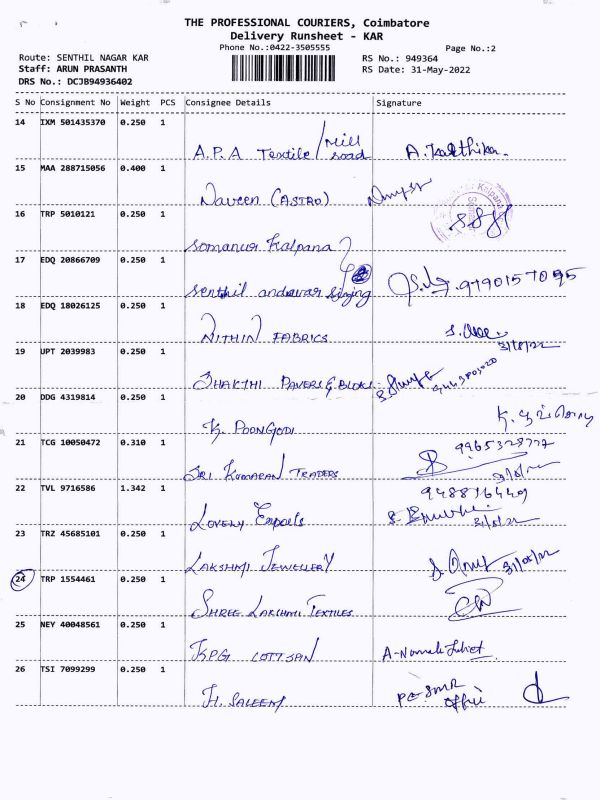 THE PROFESSIONAL COURIERS, Coimbatore
Delivery Runsheet - KAR
Phone No.:0422-3505555
Page No.:2
Route: SENTHIL NAGAR KAR
RS No.: 949364
Staff: ARUN PRASANTH
RS Date: 31-May-2022
DRS No.: DCJB94936402
S No Consignment No Weight PCS Consignee Details Signature
14 IXM 501435370 0.250 1
A.P.A Textile / Mill road A. Karthika.
15 MAA 288715056 0.400 1
Naveen (ASTRO)
16 TRP 5010121 0.250 1
Somanur Kalpana
17 EDQ 20866709 0.250 1
Senthil andavar sizing 9790157095
18 EDQ 18026125 0.250 1
NITHIN FABRICS
31/5/22
19 UPT 2039983 0.250 1
SHAKTHI PAVERS & BLOKS
20 DDG 4319814 0.250 1
K. POONGODI
21 TCG 10050472 0.310 1
SRI KUMARAN TRADERS
22 TVL 9716586 1.342 1
9488716449
LOVELY Exports
31/5/22
23 TRZ 45685101 0.250 1
LAKSHMI JEWELLERY 31/05/22
24 TRP 1554461 0.250 1
SHREE LAKSHMI TEXTILES
25 NEY 40048561 0.250 1
KPG COTTSAN
26 TSI 7099299 0.250 1
H. SALEEM office